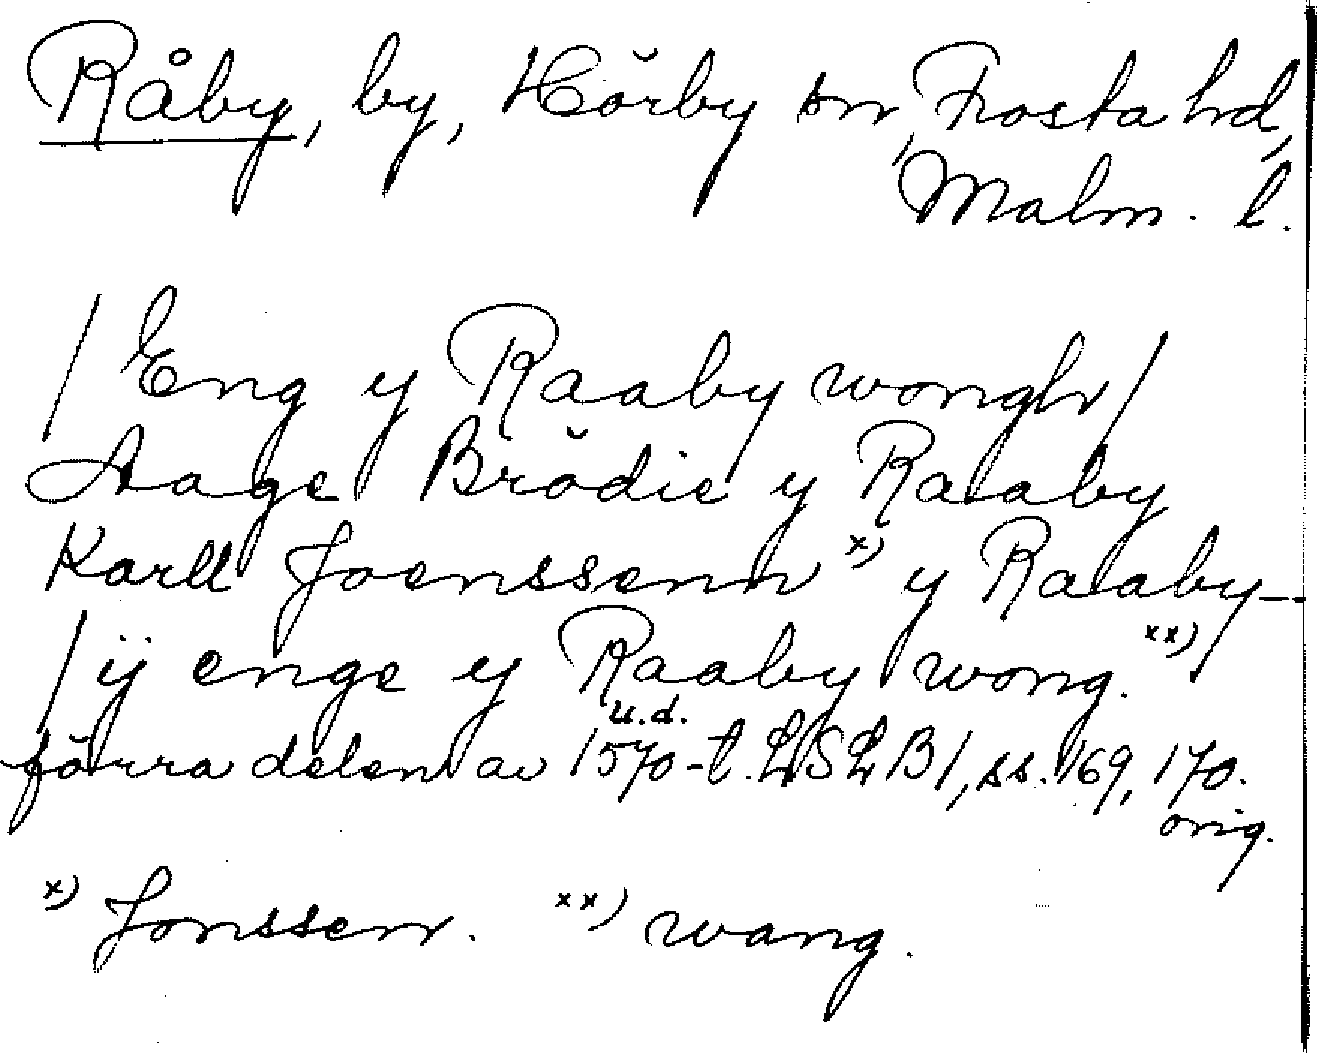 Råby, by, Hörby sn, Frosta hd,
Malm. l.
/ Eng y Raaby wongh /
Aage Brödie y Raaby
Karll Joenssenn x) y Raaby --
/ ij enge y Raaby wong. xx)
u.d.
förra delen av 1570-t. LSLB1, ss. 169, 170.
orig.
x) Jonssenn. xx) wang.